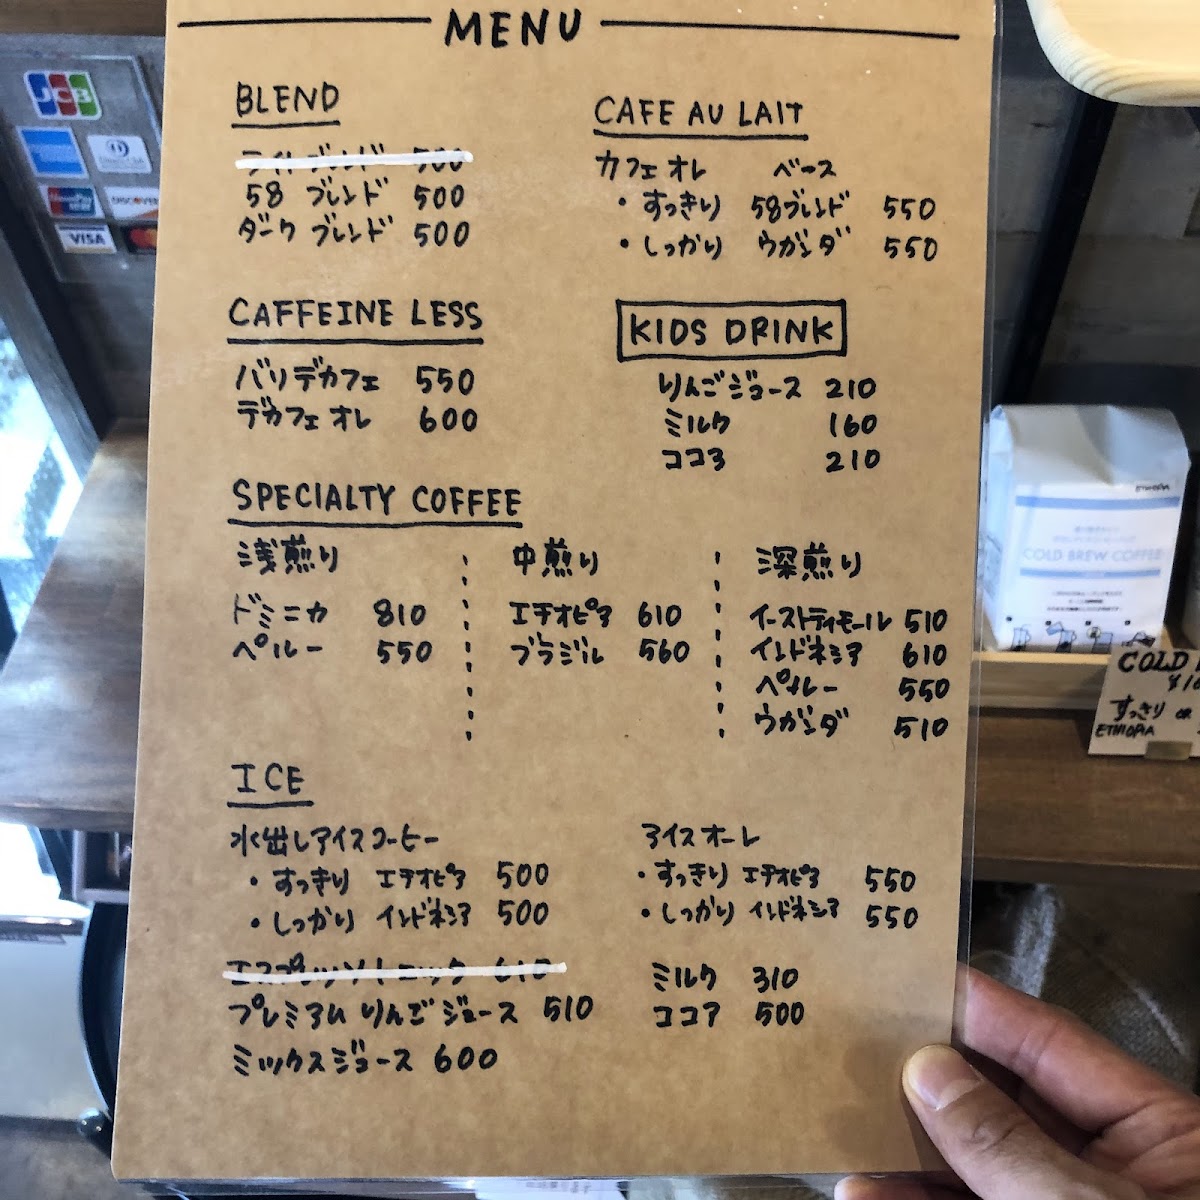 MENU
BLEND
ライトブレンド 500
58 ブレンド 500
ダーク ブレンド 500
CAFE AU LAIT
カフェ オレ ベース
・すっきり 58ブレンド 550
・しっかり ウガンダ 550
CAFFEINE LESS
バリデカフェ 550
デカフェ オレ 600
KIDS DRINK
りんごジュース 210
ミルク 160
ココア 210
SPECIALTY COFFEE
浅煎り
ドミニカ 810
ペルー 550
中煎り
エチオピア 610
ブラジル 560
深煎り
イーストティモール 510
インドネシア 610
ペルー 550
ウガンダ 510
ICE
水出しアイスコーヒー
・すっきり エチオピア 500
・しっかり インドネシア 500
エスプレッソトニック 610
プレミアム りんごジュース 510
ミックスジュース 600
アイスオーレ
・すっきり エチオピア 550
・しっかり インドネシア 550
ミルク 310
ココア 500
JCB
VISA
DISCOVER
ETHIOPIA
COLD BREW COFFEE
COLD
すっきり OR
ETHIOPIA